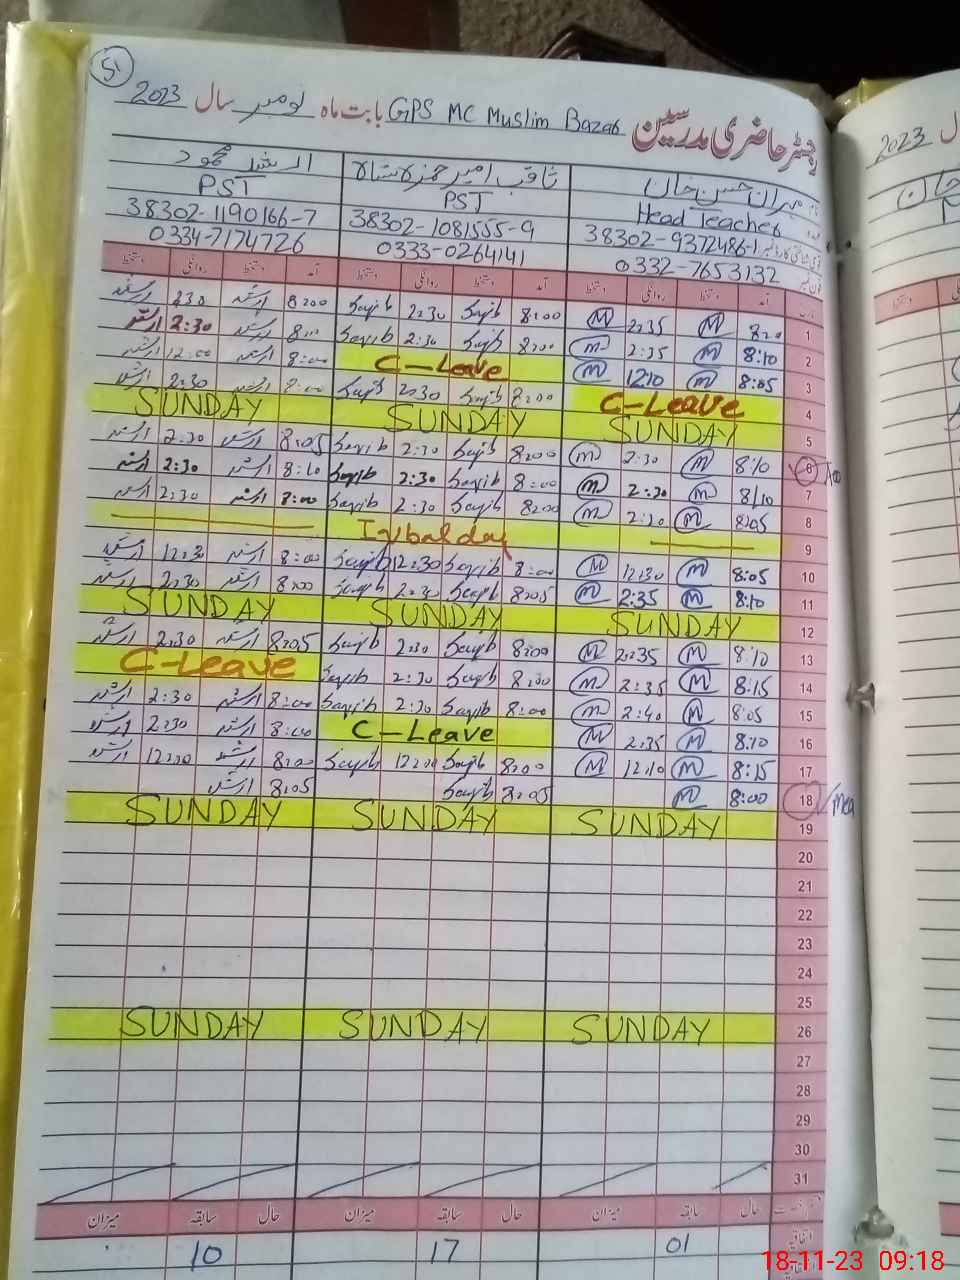 51
رجسٹر حاضری مدرسین GPS MC Muslim Bazar بابت ماہ نومبر سال 2023
مہران حسن خان ثاقب امیر حمزہ شاہ ارشد محمود
Head Teacher PST PST
38302-9372486-1 38302-1081555-9 38302-1190166-7
0332-7653132 0333-0264141 0334-7174726
آمد دستخط روانگی دستخط آمد دستخط روانگی دستخط آمد دستخط روانگی دستخط
1 M 2:35 M 8:00 Saqib 2:30 Saqib 8:00 ارشد 2:30 ارشد
2 8:10 M 2:35 M 8:00 Saqib 2:30 Saqib 8:00 ارشد 2:30 ارشد
3 8:05 M 12:10 M C-Leave 8:00 ارشد 12:00 ارشد
4 C-Leave 8:00 Saqib 2:30 Saqib 8:00 ارشد 2:30 ارشد
5 SUNDAY SUNDAY SUNDAY
6 8:10 M 2:30 M 8:00 Saqib 2:30 Saqib 8:05 ارشد 2:30 ارشد
7 8:10 M 2:30 M 8:00 Saqib 2:30 Saqib 8:10 ارشد 2:30 ارشد
8 8:05 M 2:30 M 8:00 Saqib 2:30 Saqib 8:00 ارشد 2:30 ارشد
9 Iqbal day
10 8:05 M 12:30 M 8:00 Saqib 12:30 Saqib 8:00 ارشد 12:30 ارشد
11 8:10 M 2:35 M 8:05 Saqib 2:30 Saqib 8:00 ارشد 2:30 ارشد
12 SUNDAY SUNDAY SUNDAY
13 8:10 M 2:35 M 8:00 Saqib 2:30 Saqib 8:05 ارشد 2:30 ارشد
14 8:15 M 2:35 M 8:00 Saqib 2:30 Saqib C-Leave
15 8:05 M 2:40 M 8:00 Saqib 2:30 Saqib 8:00 ارشد 2:30 ارشد
16 8:10 M 2:35 M C-Leave 8:00 ارشد 2:30 ارشد
17 8:15 M 12:10 M 8:00 Saqib 12:00 Saqib 8:00 ارشد 12:00 ارشد
18 8:00 M 8:05 Saqib 8:05 ارشد
19 SUNDAY SUNDAY SUNDAY
20
21
22
23
24
25
26 SUNDAY SUNDAY SUNDAY
27
28
29
30
31
حال سابقہ میزان حال سابقہ میزان حال سابقہ میزان
اتفاقیہ 01 17 10
2023
18-11-23 09:18